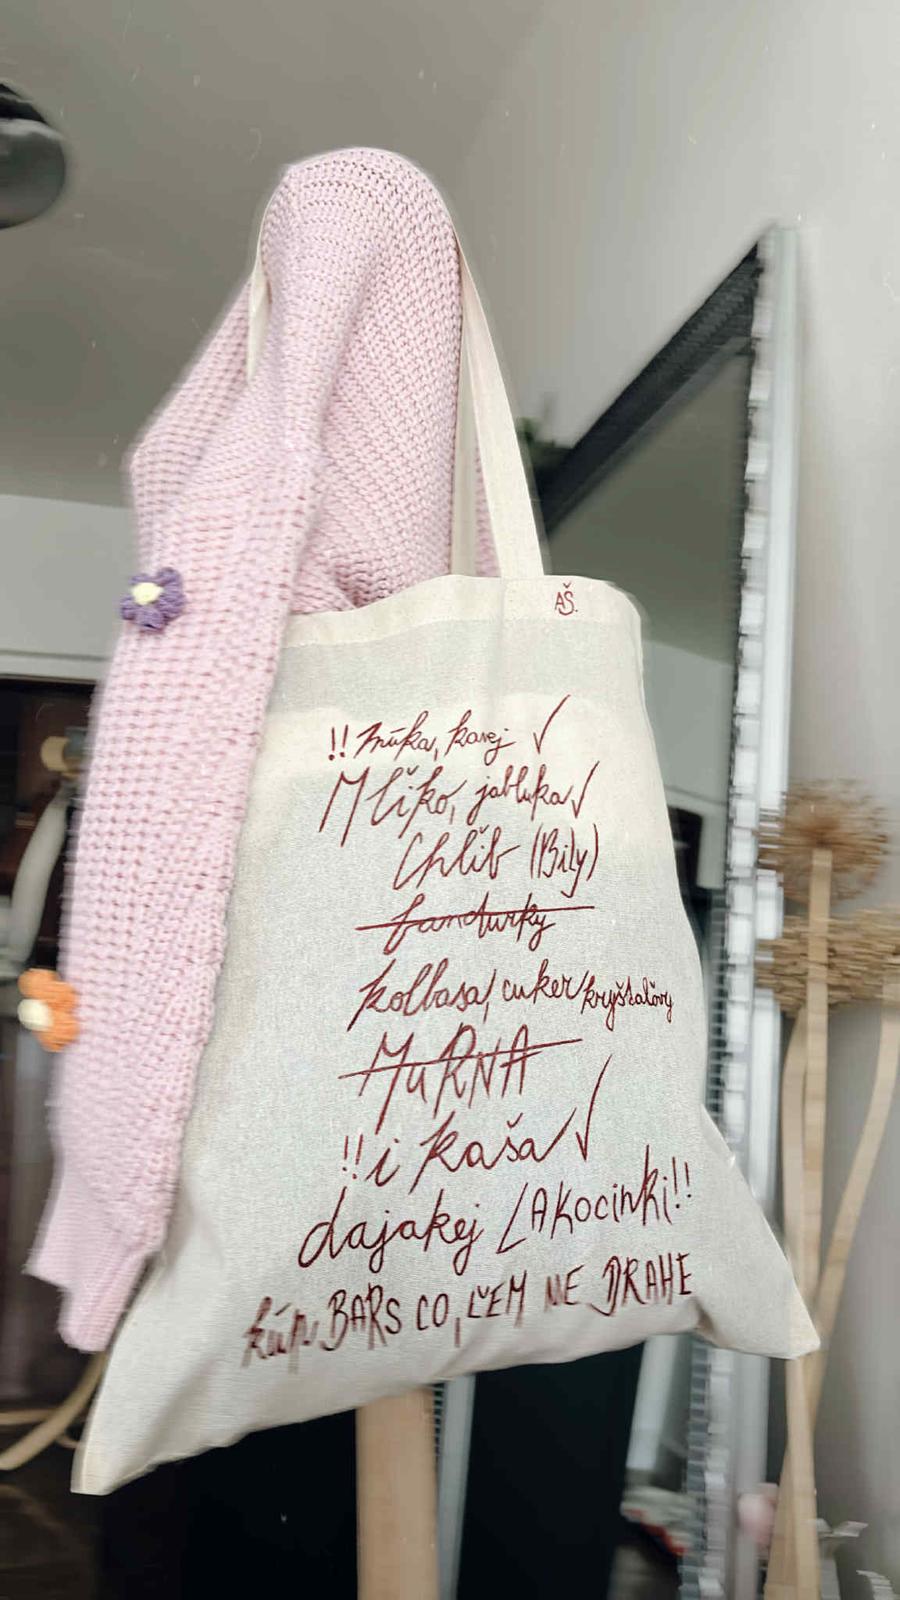 AŠ.
!! múka, kavej ✓
Mľiko, jabluka ✓
Chľib (Bily)
bandurky
kolbasa, cuker kryštaľovy
MuRNA
!! i kaša ✓
dajakej LAKocinki!!
kúp BARS CO, ĽEM NE DRAHE